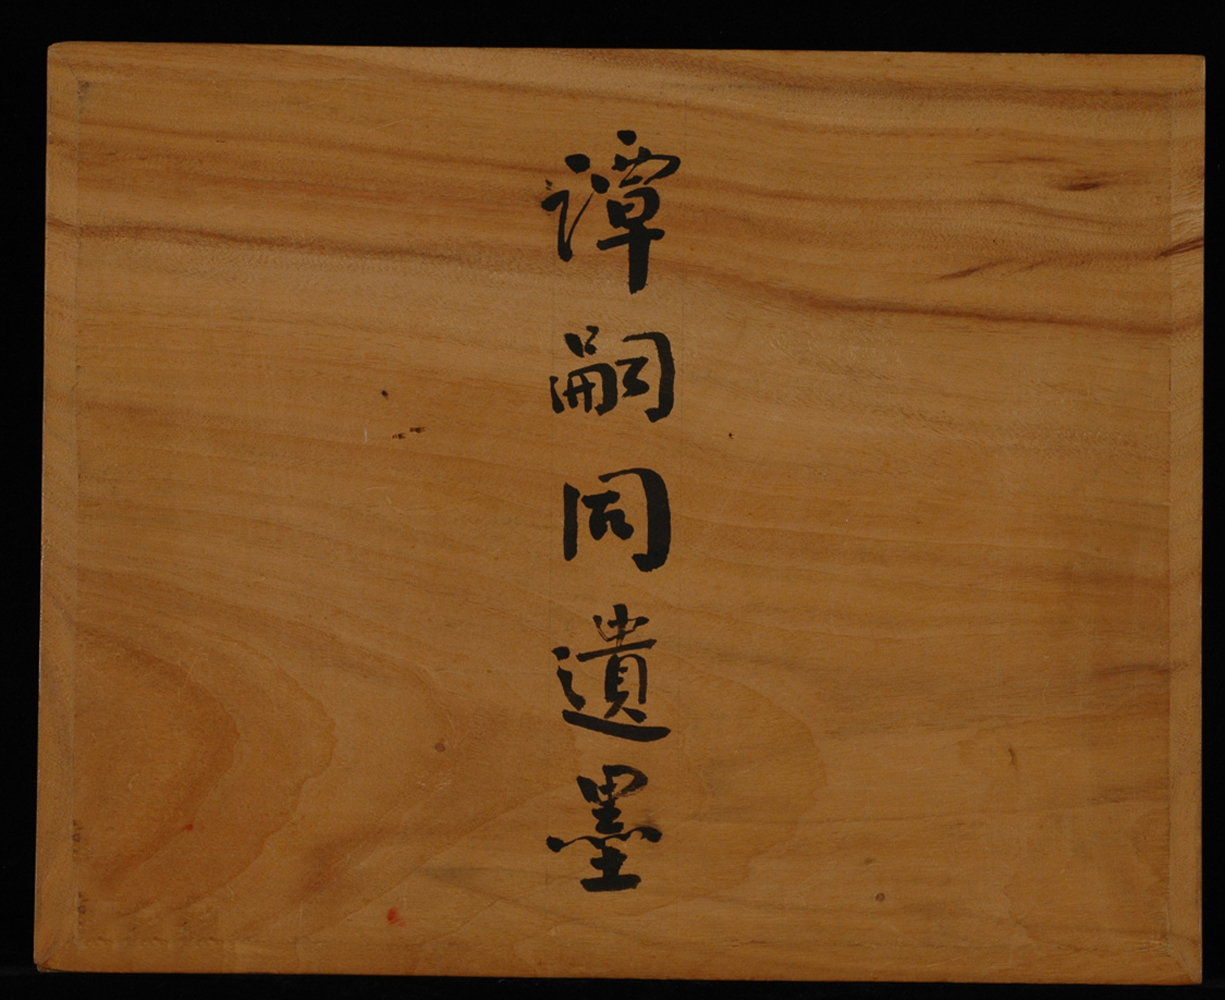 譚嗣同遺墨